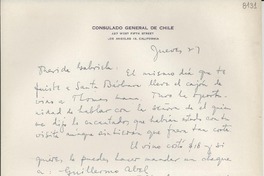 8431
CONSULADO GENERAL DE CHILE
LOS ANGELES 13, CALIFORNIA
Jueves 27
Querida Gabriela: El mismo día que te
fuiste a Santa Bárbara llevé el cajón de
vino a Thomas Mann. Tuve la oportu-
nidad de hablar con la señora de él quien
me dijo lo encantados que habían estado con tu
visita aunque sintieran que fuera tan corta.
El vino costó $18 y si
quieres le puedes hacer mandar un cheque
a Guillermo Abel